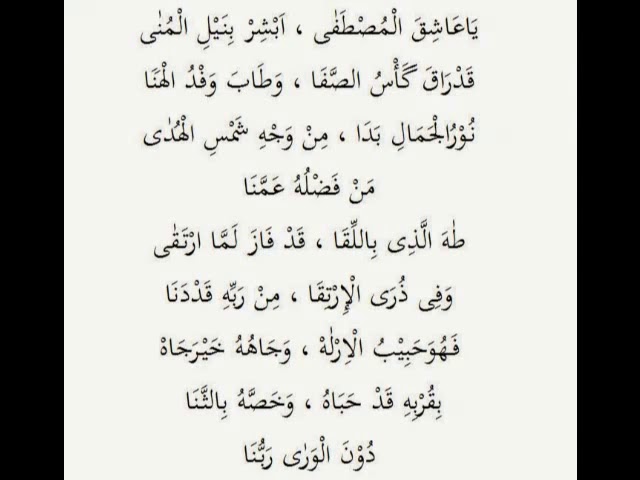 يَاعَاشِقَ الْمُصْطَفٰى ، اَبْشِرْ بِنَيْلِ الْمُنٰى
قَدْرَاقَ كَأْسُ الصَّفَا ، وَطَابَ وَفْدُ الْهَنَا
نُوْرُالْجَمَالِ بَدَا ، مِنْ وَجْهِ شَمْسِ الْهُدٰى
مَنْ فَضْلُهُ عَمَّنَا
طٰهَ الَّذِى بِاللِّقَا ، قَدْ فَازَ لَمَّا ارْتَقٰى
وَفِى ذُرَى الْإِرْتِقَا ، مِنْ رَبِّهِ قَدْدَنَا
فَهُوَحَبِيْبُ الْاِلٰهْ ، وَجَاهُهُ خَيْرَجَاهْ
بِقُرْبِهِ قَدْ حَبَاهُ ، وَخَصَّهُ بِالثَّنَا
دُوْنَ الْوَرٰى رَبُّنَا